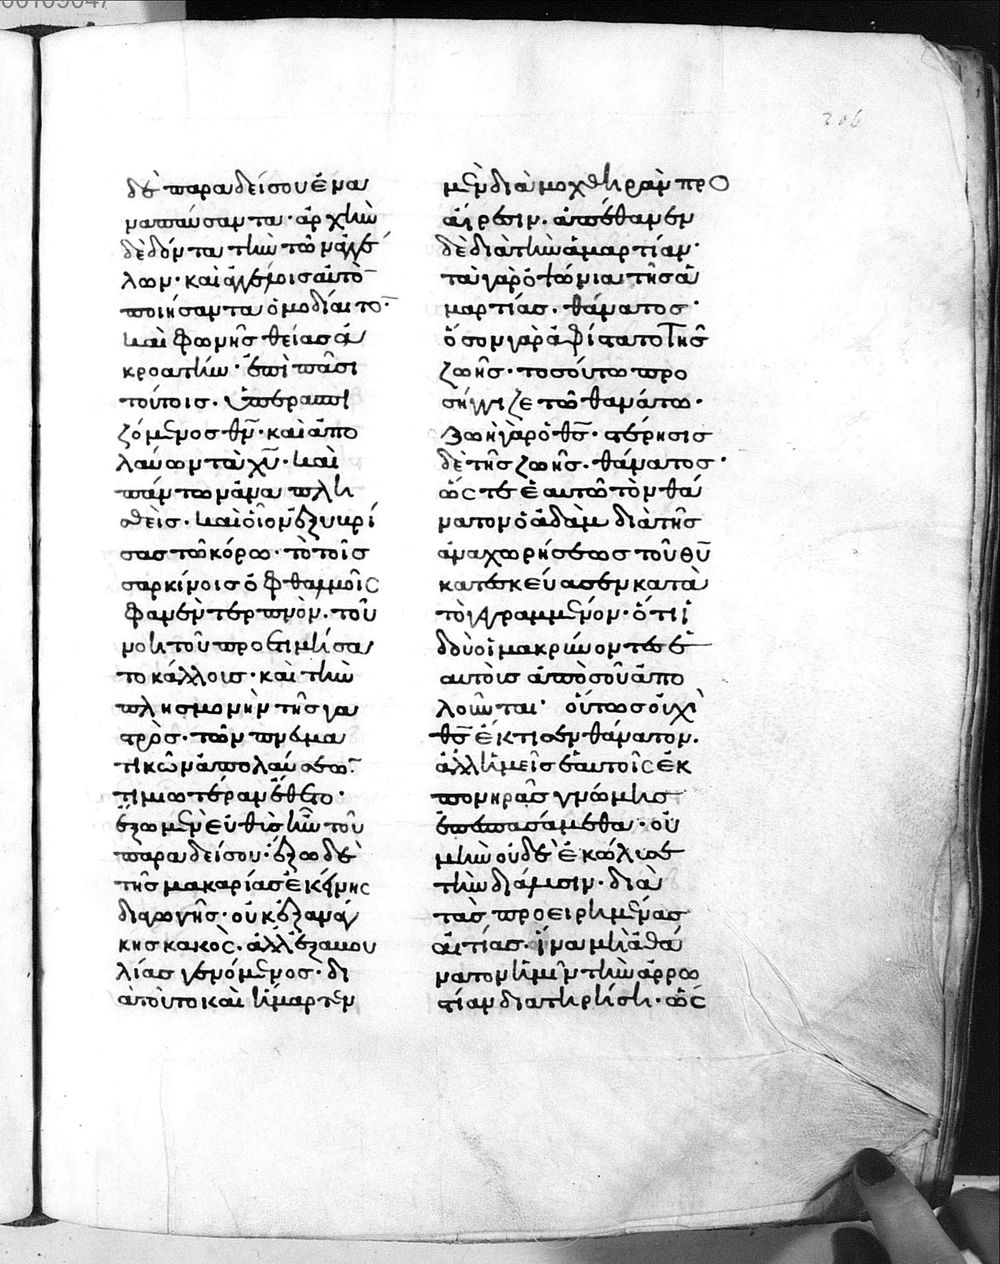 206
δὲ παραδείσου ἐνα
ναπαύσαντα· ἀρχὴν
δὲ δόντα τὴν τῶν ἀγγέ
λων· καὶ ἀγγέλοις αὐτὸ̅
ποιήσαντα ὁμοδίαιτο̅·
καὶ φωνῆς θείας ἀ
κροατήν· ἐπὶ πᾶσι
τούτοις. ὑπερασπι
ζόμενος θυ̅· καὶ ἀπο
λαύων τὰ χυ̅· καὶ
πάντων ἀνα πλη
σθείς. καὶ οἷον ἐξυβρί
σας τῷ κόρῳ· τὸ τοῖς
σαρκίνοις ὀφθαλμοῖς
φανὲν τερπνὸν. τοῦ
νοητοῦ προετιμησα
το κάλλοις· καὶ τὴν
πλησμονὴν τῆς γα
στρὸς· τῶν πνευμα
τικῶν ἀπολαύσεω̅·
τιμιωτέραν ἔθετο·
ἔξω μὲν εὐθὺς ἦν τοῦ
παραδείσου· ἔξω δὲ
τῆς μακαρίας ἐκείνης
διαγωγῆς· οὐκ ἐξ ἀνάγ
κης κακὸς. ἀλλ' ἐξ ἀβου
λίας γενόμενος· δι
ατοῦτο καὶ ἥμαρτεν
μὲν διὰ μοχθηρὰν προ
αίρεσιν. ἀπέθανεν
δὲ διὰ τὴν ἁμαρτίαν·
τὰ γὰρ ὀψώνια τῆς ἁ
μαρτίας. θάνατος·
ὅσον γὰρ ἀφίστατο τῆς
ζωῆς· τοσούτω προ
σήγγιζε τῷ θανάτω·
ζωὴ γὰρ ὁ θς̅· στέρησις
δὲ τῆς ζωῆς. θάνατος·
ὥστε ἑαυτῷ τὸν θά
νατον ὁ ἀδὰμ διὰ τῆς
ἀναχωρήσεως τοῦ θυ̅
κατεσκεύασεν κατὰ
τὸ γεγραμμένον· ὅτι ἰ
δοὺ οἱ μακρύνοντες ἑ
αυτοὺς ἀπὸ σοῦ ἀπο
λοῦνται· οὕτως οὐχὶ
θς̅ ἔκτισεν θάνατον.
ἀλλ' ἡμεῖς ἑαυτοῖς ἐκ
πονηρᾶς γνώμης
ἐπεσπασάμεθα· οὐ
μὴν οὐδὲ ἐκώλυσε
τὴν διάλυσιν· διὰ
τὰς προειρημένας
αἰτίας. ἵνα μὴ ἀθά
νατον ἡμῖν τὴν ἀρρω
στίαν διατηρήση· ὡς